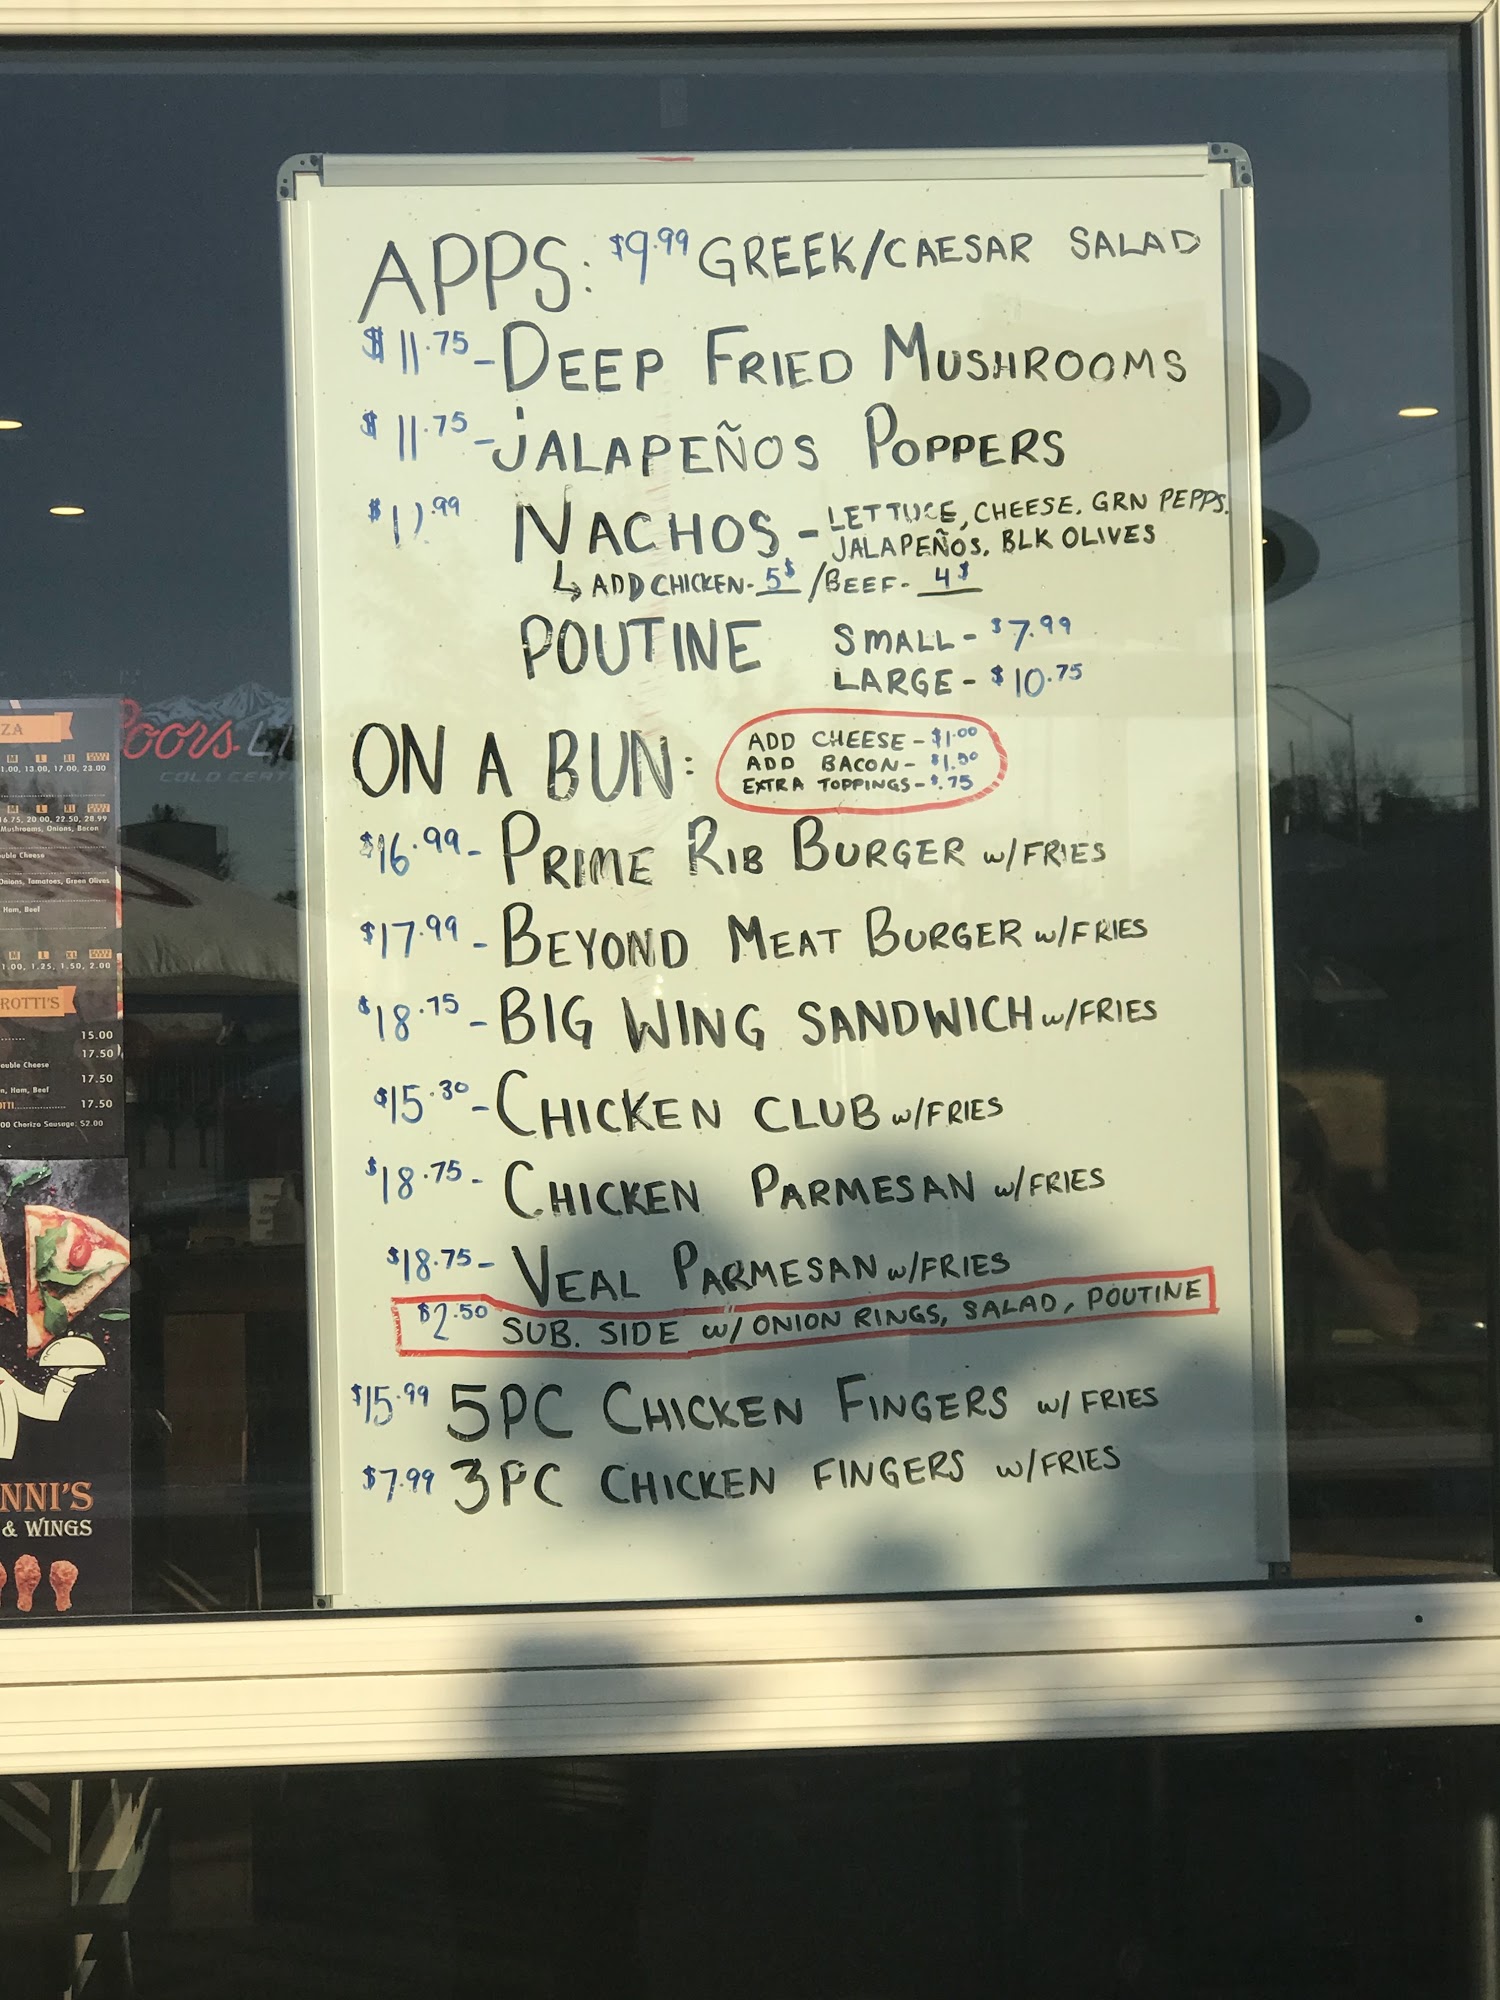 APPS: $9.99 GREEK/CAESAR SALAD
$11.75 - DEEP FRIED MUSHROOMS
$11.75 - JALAPEÑOS POPPERS
NACHOS - LETTUCE, CHEESE, GRN PEPPS.
JALAPEÑOS, BLK OLIVES
↳ ADD CHICKEN - 5$ / BEEF - 4$
POUTINE SMALL - $7.99
LARGE - $10.75
ON A BUN:
ADD CHEESE - $1.00
ADD BACON - $1.50
EXTRA TOPPINGS - $.75
$16.99 - PRIME RIB BURGER w/FRIES
$17.99 - BEYOND MEAT BURGER w/FRIES
$18.75 - BIG WING SANDWICH w/FRIES
$15.30 - CHICKEN CLUB w/FRIES
$18.75 - CHICKEN PARMESAN w/FRIES
$18.75 - VEAL PARMESAN w/FRIES
$2.50 SUB. SIDE w/ ONION RINGS, SALAD, POUTINE
$15.99 5PC CHICKEN FINGERS w/ FRIES
$7.99 3PC CHICKEN FINGERS w/FRIES
Coors LI
COLD CERT
ZA
M L XL
1.00, 13.00, 17.00, 23.00
M L XL
16.75, 20.00, 22.50, 28.99
Mushrooms, Onions, Bacon
uble Cheese
Onions, Tomatoes, Green Olives
Ham, Beef
M L XL
1.00, 1.25, 1.50, 2.00
ROTTI'S
15.00
17.50
ouble Cheese
17.50
n, Ham, Beef
OTTI 17.50
00 Chorizo Sausage: $2.00
NNI'S
& WINGS